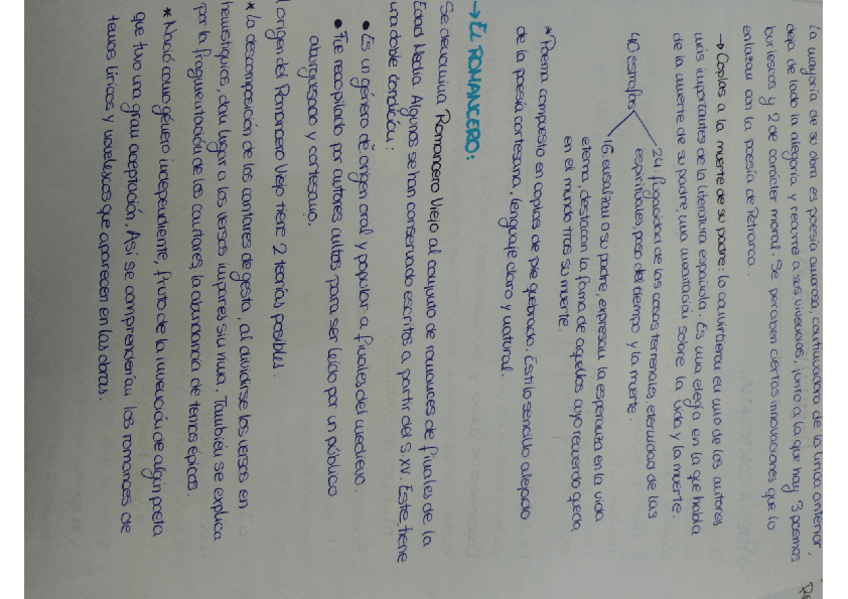 La mayoría de su obra es poesía amorosa, continuadora de la lírica anterior,
deja de lado la alegoría y recurre a sus vivencias, junto a la que hay 3 poemas
burlescos y 2 de carácter moral. Se perciben ciertas innovaciones que lo
enlazan con la poesía de Petrarca.
→ Coplas a la muerte de su padre: lo convirtieron en uno de los autores
más importantes de la literatura española. Es una elegía en la que habla
de la muerte de su padre, una meditación sobre la vida y la muerte.
24: fugacidad de las cosas terrenales, eternidad de las
40 estrofas espirituales, paso del tiempo y la muerte.
16: ensalzan a su padre, expresan la esperanza en la vida
eterna, destacan la fama de aquellos cuyo recuerdo queda
en el mundo tras su muerte.
*Poema compuesto en coplas de pie quebrado. Estilo sencillo alejado
de la poesía cortesana, lenguaje claro y natural.
→ EL ROMANCERO:
Se denomina Romancero Viejo al conjunto de romances de finales de la
Edad Media. Algunos se han conservado escritos a partir del S.XV. Este tiene
una doble condición:
• Es un género de origen oral y popular a finales del medievo.
• Fue recopilado por autores cultos para ser leído por un público
aburguesado y cortesano.
l origen del Romancero Viejo tiene 2 teorías posibles:
* La descomposición de los cantares de gesta, al dividirse los versos en
hemistiquios, dan lugar a los versos impares sin rima. También se explica
por la fragmentación de los cantares, la abundancia de temas épicos.
* Nació como género independiente, fruto de la invención de algún poeta
que tuvo una gran aceptación. Así se comprenderían los romances de
temas líricos y novelescos que aparecen en las obras.